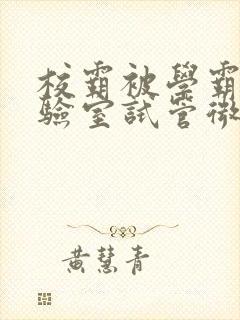 校霸被學霸
驗室試管微
黃慧青